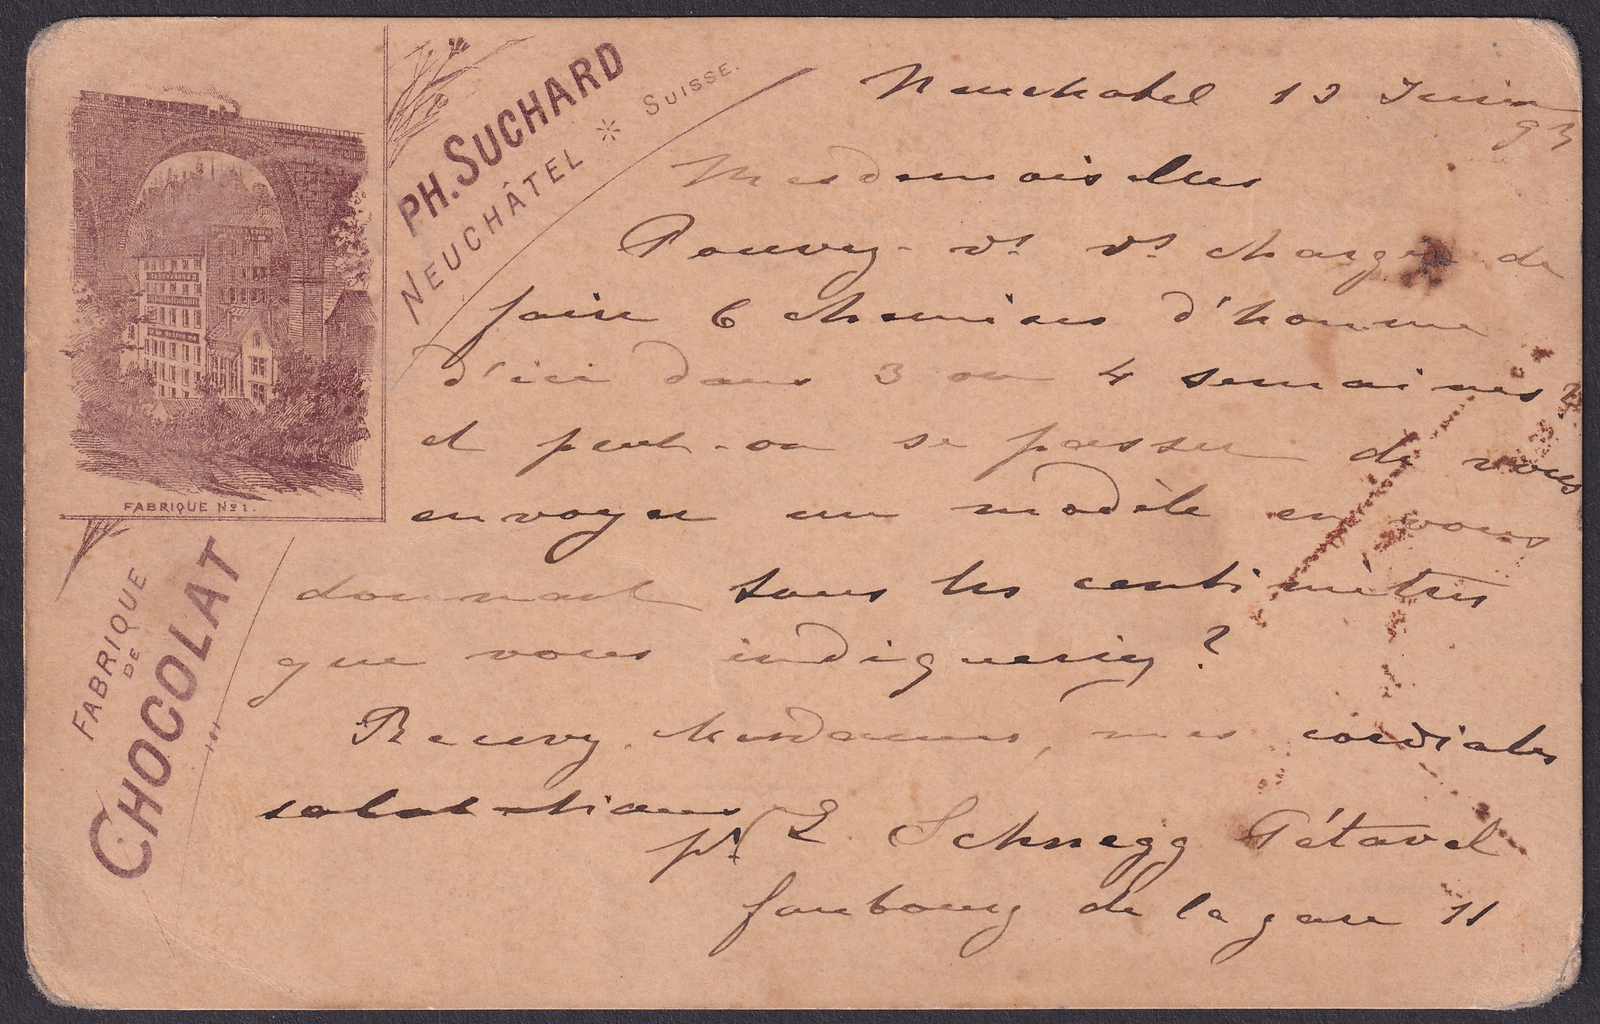 PH. SUCHARD
NEUCHÂTEL * SUISSE.
FABRIQUE No 1.
FABRIQUE
DE
CHOCOLAT
Neuchatel 13 Juin
93
Mesdemoiselles
Pouvez-vs vs charger de
faire 6 chemises d'homme
d'ici dans 3 ou 4 semaines
et peut-on se passer de vous
envoyer un modèle en vous
donnant tous les centimètres
que vous indiqueriez ?
Recevez, Mesdames, mes cordiales
salutations
pr E. Schnegg Pétavel
faubourg de la gare 11